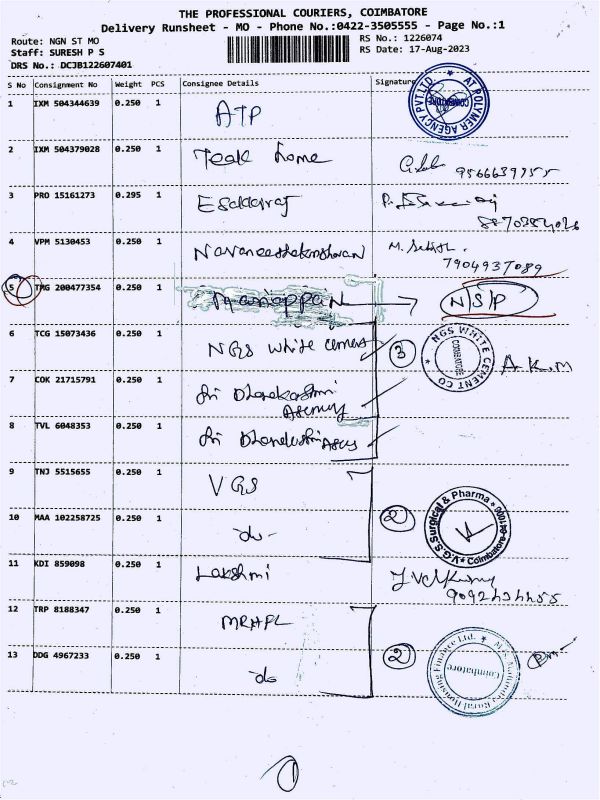 THE PROFESSIONAL COURIERS, COIMBATORE
Delivery Runsheet - MO - Phone No.:0422-3505555 - Page No.:1
Route: NGN ST MO
RS No.: 1226074
Staff: SURESH P S
RS Date: 17-Aug-2023
DRS No.: DCJB122607401
S No Consignment No Weight PCS Consignee Details Signature
1 IXM 504344639 0.250 1 ATP
AT POLYMER AGENCY PVT.LTD. COIMBATORE
2 IXM 504379028 0.250 1 Teak home
9566639755
3 PRO 15161273 0.295 1 Esakkiraj
4 VPM 5130453 0.250 1
7904937089
5 TMG 200477354 0.250 1 Mariappan N/S/P
6 TCG 15073436 0.250 1 NGS white cement 3 A.K.M
NGS WHITE CEMENT CO COIMBATORE
7 COK 21715791 0.250 1 Sri Dhanalakshmi Agency
8 TVL 6048353 0.250 1 Sri
9 TNJ 5515655 0.250 1 VGS
10 MAA 102258725 0.250 1 do- 2
V.G.S.Surgical & Pharma Coimbatore
11 KDI 859098 0.250 1 Lakshmi
12 TRP 8188347 0.250 1 MRHFL
13 DDG 4967233 0.250 1 do 2
Rural Housing Finance Ltd. Coimbatore